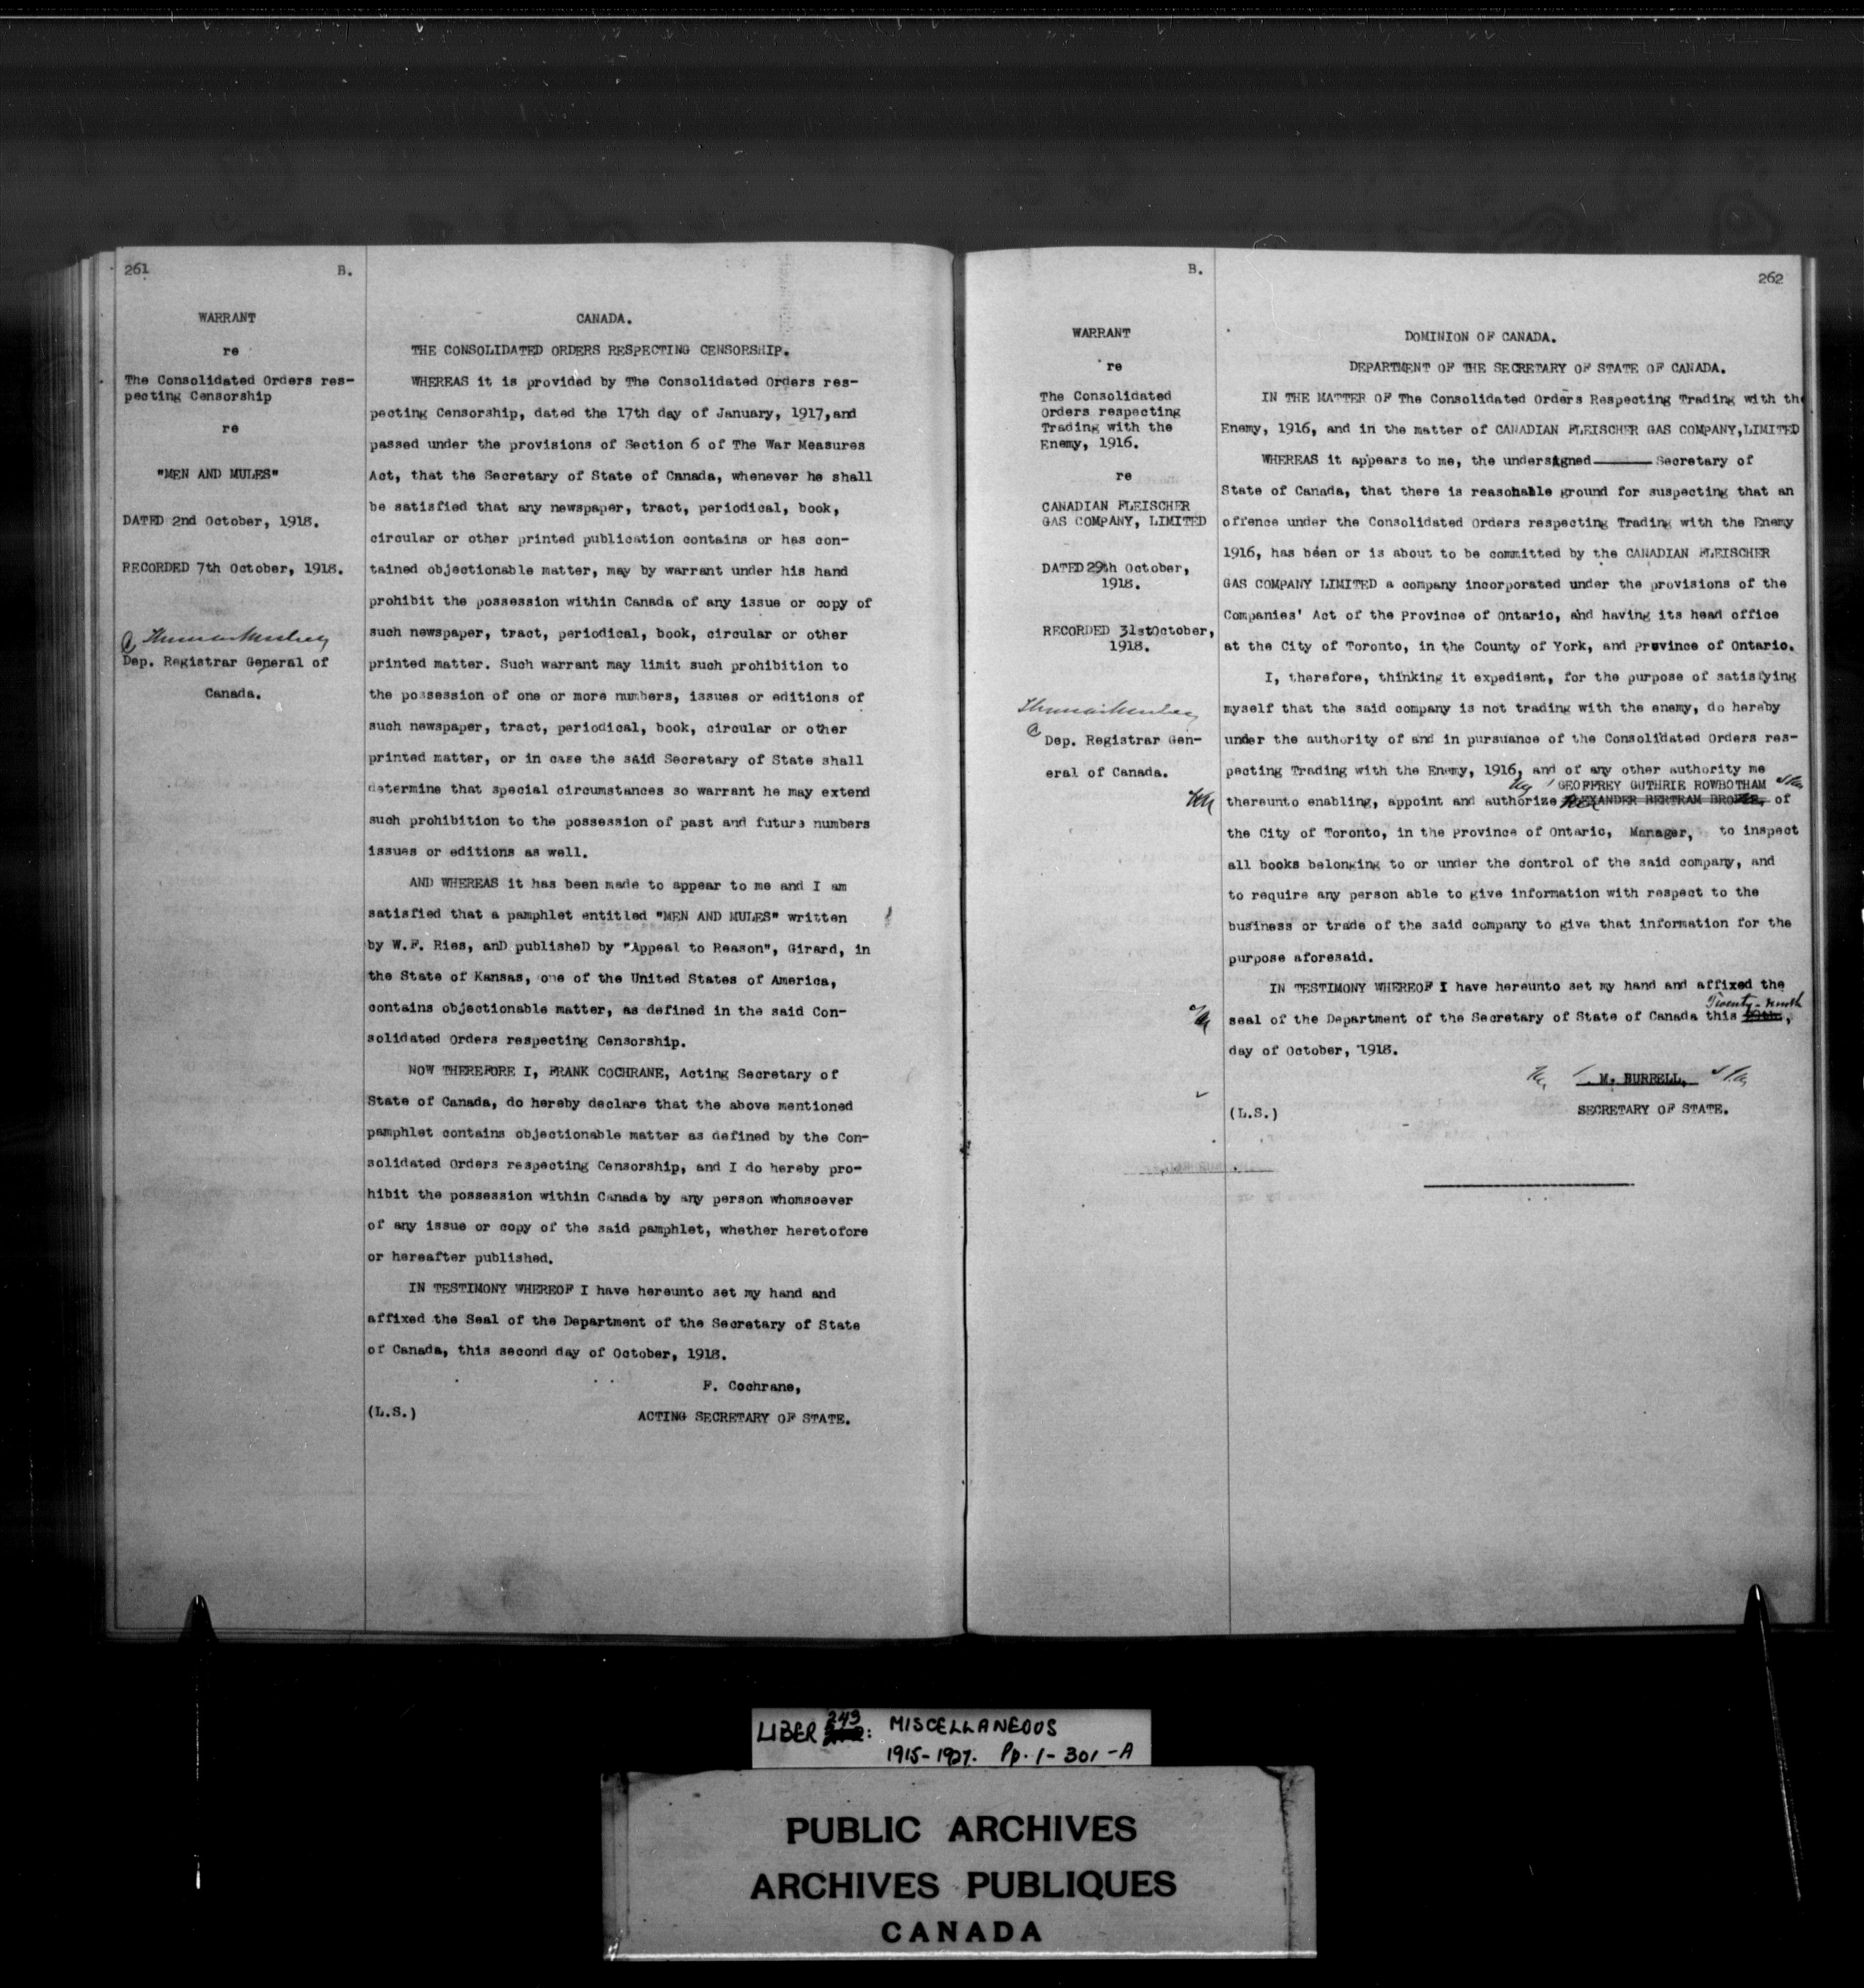 261 B.
WARRANT
re
The Consolidated Orders res-
pecting Censorship
re
"MEN AND MULES"
DATED 2nd October, 1918.
RECORDED 7th October, 1918.
Dep. Registrar General of
Canada.
CANADA.
THE CONSOLIDATED ORDERS RESPECTING CENSORSHIP.
WHEREAS it is provided by The Consolidated Orders res-
pecting Censorship, dated the 17th day of January, 1917,and
passed under the provisions of Section 6 of The War Measures
Act, that the Secretary of State of Canada, whenever he shall
be satisfied that any newspaper, tract, periodical, book,
circular or other printed publication contains or has con-
tained objectionable matter, may by warrant under his hand
prohibit the possession within Canada of any issue or copy of
such newspaper, tract, periodical, book, circular or other
printed matter. Such warrant may limit such prohibition to
the possession of one or more numbers, issues or editions of
such newspaper, tract, periodical, book, circular or other
printed matter, or in case the said Secretary of State shall
determine that special circumstances so warrant he may extend
such prohibition to the possession of past and future numbers
issues or editions as well.
AND WHEREAS it has been made to appear to me and I am
satisfied that a pamphlet entitled "MEN AND MULES" written
by W.F. Ries, anD publisheD by "Appeal to Reason", Girard, in
the State of Kansas, one of the United States of America,
contains objectionable matter, as defined in the said Con-
solidated Orders respecting Censorship.
NOW THEREFORE I, FRANK COCHRANE, Acting Secretary of
State of Canada, do hereby declare that the above mentioned
pamphlet contains objectionable matter as defined by the Con-
solidated Orders respecting Censorship, and I do hereby pro-
hibit the possession within Canada by any person whomsoever
of any issue or copy of the said pamphlet, whether heretofore
or hereafter published.
IN TESTIMONY WHEREOF I have hereunto set my hand and
affixed the Seal of the Department of the Secretary of State
of Canada, this second day of October, 1918.
F. Cochrane,
(L.S.) ACTING SECRETARY OF STATE.
B. 262
WARRANT
re
The Consolidated
Orders respecting
Trading with the
Enemy, 1916.
re
CANADIAN FLEISCHER
GAS COMPANY, LIMITED
DATED 29th October,
1918.
RECORDED 31stOctober,
1918.
Dep. Registrar Gen-
eral of Canada.
DOMINION OF CANADA.
DEPARTMENT OF THE SECRETARY OF STATE OF CANADA.
IN THE MATTER OF The Consolidated Orders Respecting Trading with the
Enemy, 1916, and in the matter of CANADIAN FLEISCHER GAS COMPANY,LIMITED
WHEREAS it appears to me, the undersigned Secretary of
State of Canada, that there is reasonable ground for suspecting that an
offence under the Consolidated Orders respecting Trading with the Enemy
1916, has been or is about to be committed by the CANADIAN FLEISCHER
GAS COMPANY LIMITED a company incorporated under the provisions of the
Companies' Act of the Province of Ontario, and having its head office
at the City of Toronto, in the County of York, and Province of Ontario.
I, therefore, thinking it expedient, for the purpose of satisfying
myself that the said company is not trading with the enemy, do hereby
under the authority of and in pursuance of the Consolidated Orders res-
pecting Trading with the Enemy, 1916, and of any other authority me
GEOFFREY GUTHRIE ROWBOTHAM
thereunto enabling, appoint and authorize ALEXANDER BERTRAM of
the City of Toronto, in the Province of Ontario, Manager, to inspect
all books belonging to or under the control of the said company, and
to require any person able to give information with respect to the
business or trade of the said company to give that information for the
purpose aforesaid.
IN TESTIMONY WHEREOF I have hereunto set my hand and affixed the
Twenty-ninth
seal of the Department of the Secretary of State of Canada this
day of October, 1918.
M. BURRELL,
(L.S.) SECRETARY OF STATE.
LIBER 243: MISCELLANEOUS
1915-1927. Pp. 1-301-A
PUBLIC ARCHIVES
ARCHIVES PUBLIQUES
CANADA